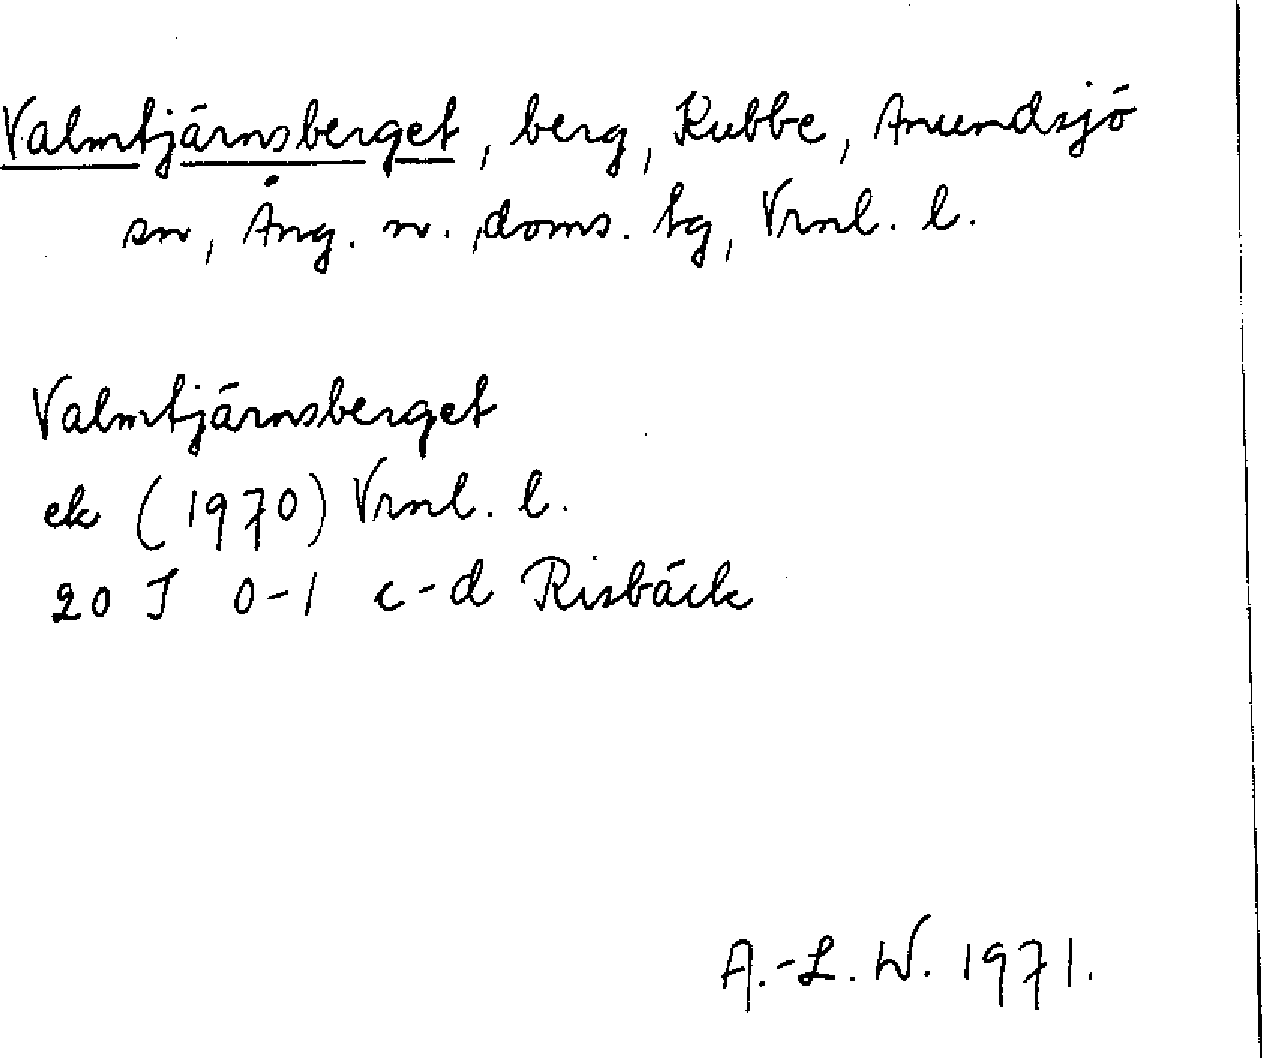 Valmtjärnsberget, berg, Kubbe, Anundsjö
sn, Ång. n. doms. tg, Vrnl. l.
Valmtjärnsberget
ek (1970) Vrnl. l.
20 J 0-1 c-d Risbäck
A.-L. W. 1971.